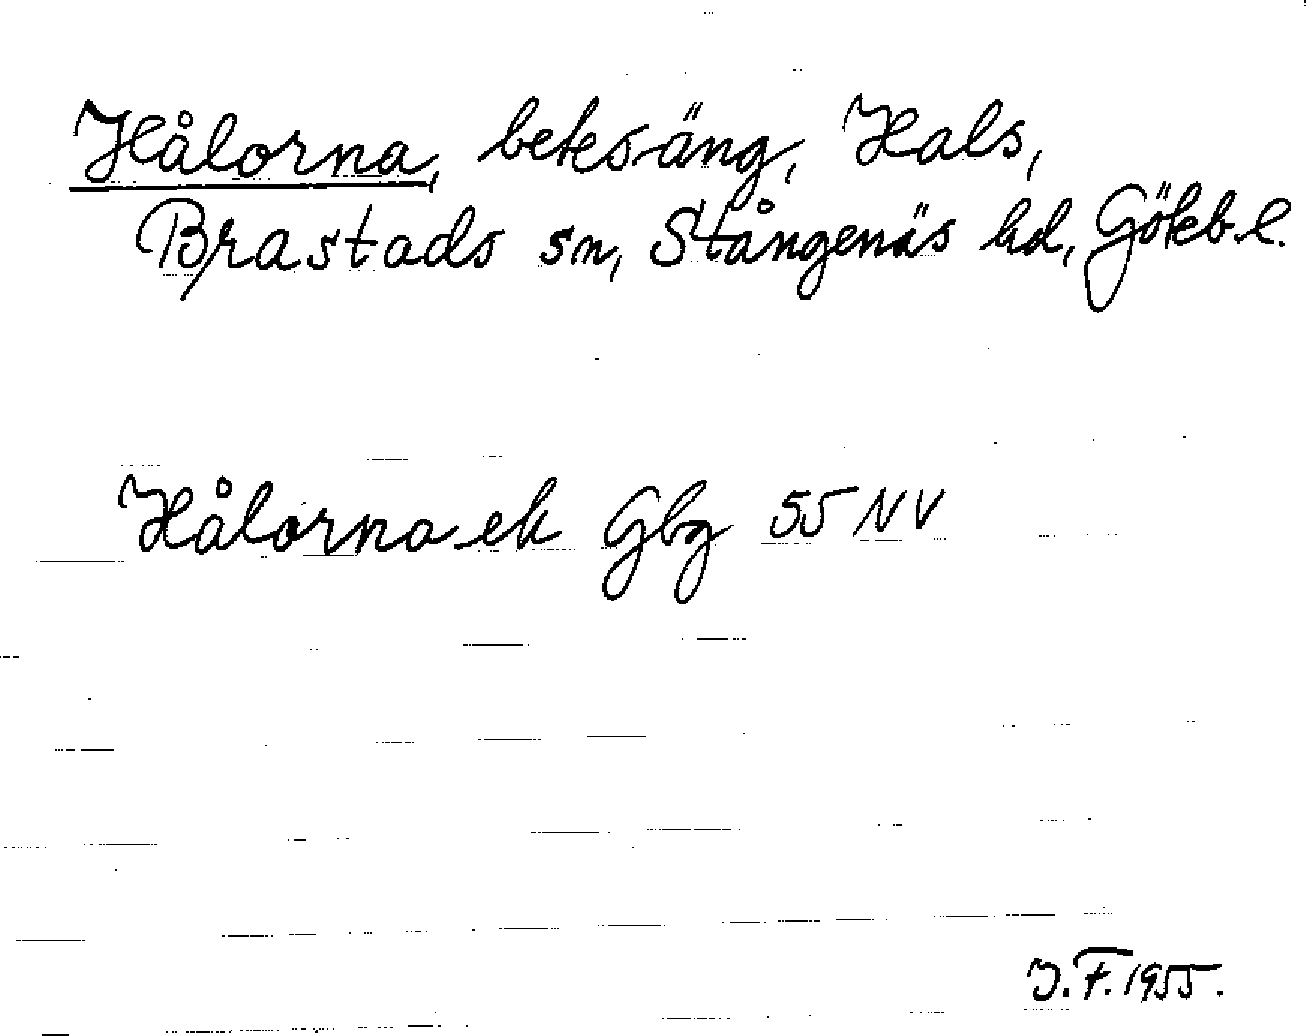 Hålorna, betesäng, Hals,
Brastads sn, Stångenäs hd, Gökb. l.
Hålorna ek Gbg 55 NV
J. F. 1955.